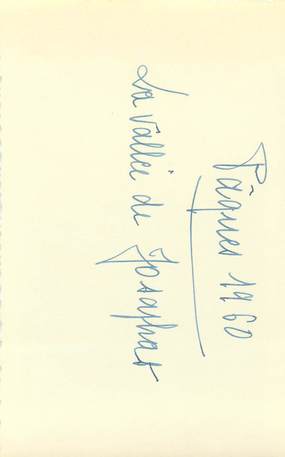 Pâques 1960
La vallée de
Josaphat